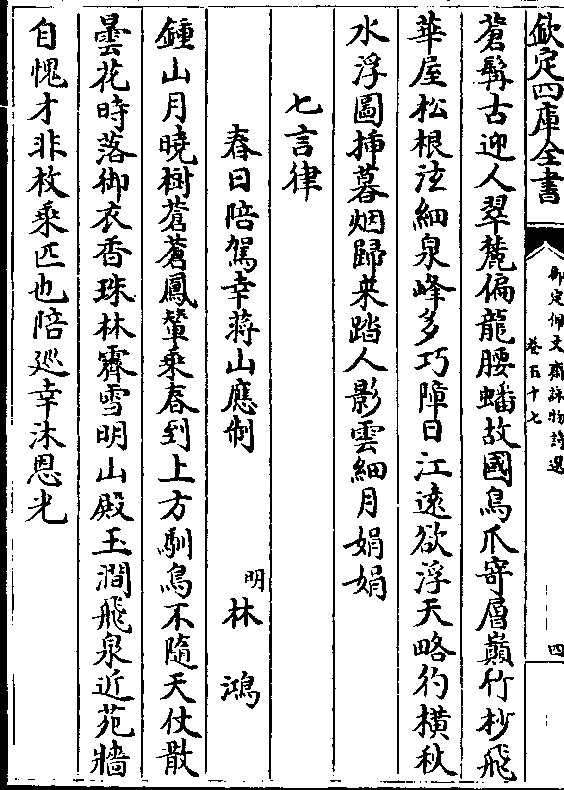 欽定四庫全書
御定佩文齋詠物詩選
卷五十七
四
蒼髯古迎人翠麓偏龍腰蟠故國鳥爪寄層巔竹杪飛
華屋松根泫細泉峰多巧障日江遠欲浮天略彴橫秋
水浮圖揷暮烟歸来踏人影雲細月娟娟
七言律
春日陪駕幸蒋山應制
明林鴻
鍾山月曉樹蒼蒼鳳輦乘春到上方馴鳥不隨天仗散
曇花時落御衣香珠林霽雪明山殿玉澗飛泉近苑牆
自愧才非枚乘匹也陪巡幸沐恩光